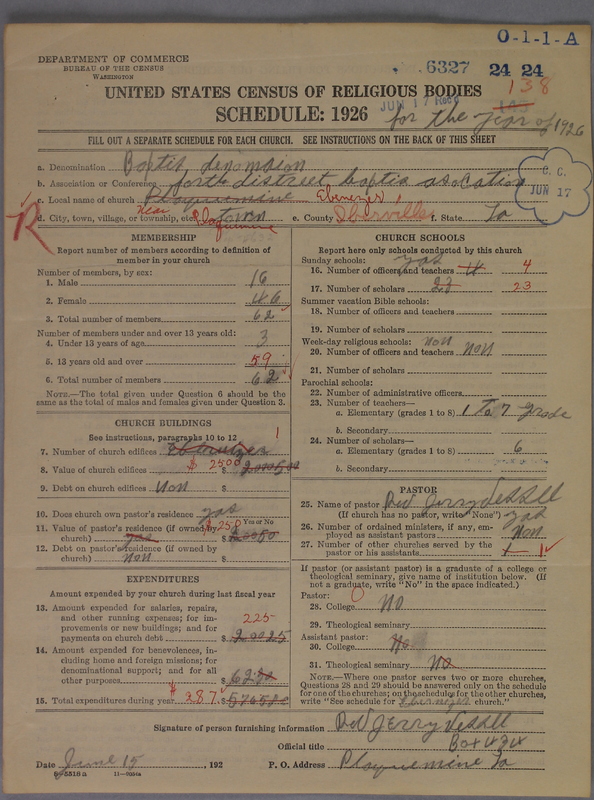 O-1-1-A
DEPARTMENT OF COMMERCE
BUREAU OF THE CENSUS
WASHINGTON
6327 24 24
138
UNITED STATES CENSUS OF RELIGIOUS BODIES
SCHEDULE: 1926
JUN 17 Rec'd
for the year of 1926
FILL OUT A SEPARATE SCHEDULE FOR EACH CHURCH. SEE INSTRUCTIONS ON THE BACK OF THIS SHEET
a. Denomination Baptis denomaion
b. Association or Conference forth district baptis asocation
C. C.
JUN 17
c. Local name of church Ploquemine Ebenezer
d. City, town, village, or township, etc. near Plaquemine town e. County Iberville f. State La
R
MEMBERSHIP
Report number of members according to definition of
member in your church
Number of members, by sex:
1. Male 16
2. Female 46
3. Total number of members 62
Number of members under and over 13 years old:
4. Under 13 years of age 3
5. 13 years old and over 59
6. Total number of members 62
NOTE.—The total given under Question 6 should be the
same as the total of males and females given under Question 3.
CHURCH BUILDINGS
See instructions, paragraphs 10 to 12
7. Number of church edifices 1
8. Value of church edifices $ 2500
9. Debt on church edifices Non $
10. Does church own pastor's residence? yas
Yes or No
11. Value of pastor's residence (if owned by
church) yas $ 250
12. Debt on pastor's residence (if owned by
church) non $
EXPENDITURES
Amount expended by your church during last fiscal year
13. Amount expended for salaries, repairs,
and other running expenses; for im-
provements or new buildings; and for
payments on church debt 225 $ 20025
14. Amount expended for benevolences, in-
cluding home and foreign missions; for
denominational support; and for all
other purposes $ 62
15. Total expenditures during year $ 287
CHURCH SCHOOLS
Report here only schools conducted by this church
Sunday schools: yas
16. Number of officers and teachers 4
17. Number of scholars 23 23
Summer vacation Bible schools:
18. Number of officers and teachers
19. Number of scholars
Week-day religious schools: non
20. Number of officers and teachers non
21. Number of scholars
Parochial schools:
22. Number of administrative officers
23. Number of teachers—
a. Elementary (grades 1 to 8) 1 To 7 grade
b. Secondary
24. Number of scholars—
a. Elementary (grades 1 to 8) 6
b. Secondary
PASTOR
25. Name of pastor Rev Jerry
(If church has no pastor, write "None") yas
26. Number of ordained ministers, if any, em-
ployed as assistant pastors Non
27. Number of other churches served by the
pastor or his assistants 1
If pastor (or assistant pastor) is a graduate of a college or
theological seminary, give name of institution below. (If
not a graduate, write "No" in the space indicated.)
Pastor:
28. College No
29. Theological seminary
Assistant pastor:
30. College No
31. Theological seminary No
NOTE.—Where one pastor serves two or more churches,
Questions 28 and 29 should be answered only on the schedule
for one of the churches; on the schedule for the other churches,
write "See schedule for church."
Signature of person furnishing information Rev Jerry
Official title Box 424
Date June 15, 192 P. O. Address Ploquemine La